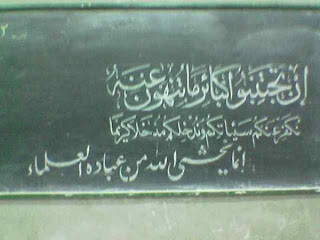 إن تجتنبوا كبائر ما تنهون عنه
نكفر عنكم سيئاتكم وندخلكم مدخلا كريما
إنما يخشى الله من عباده العلماء